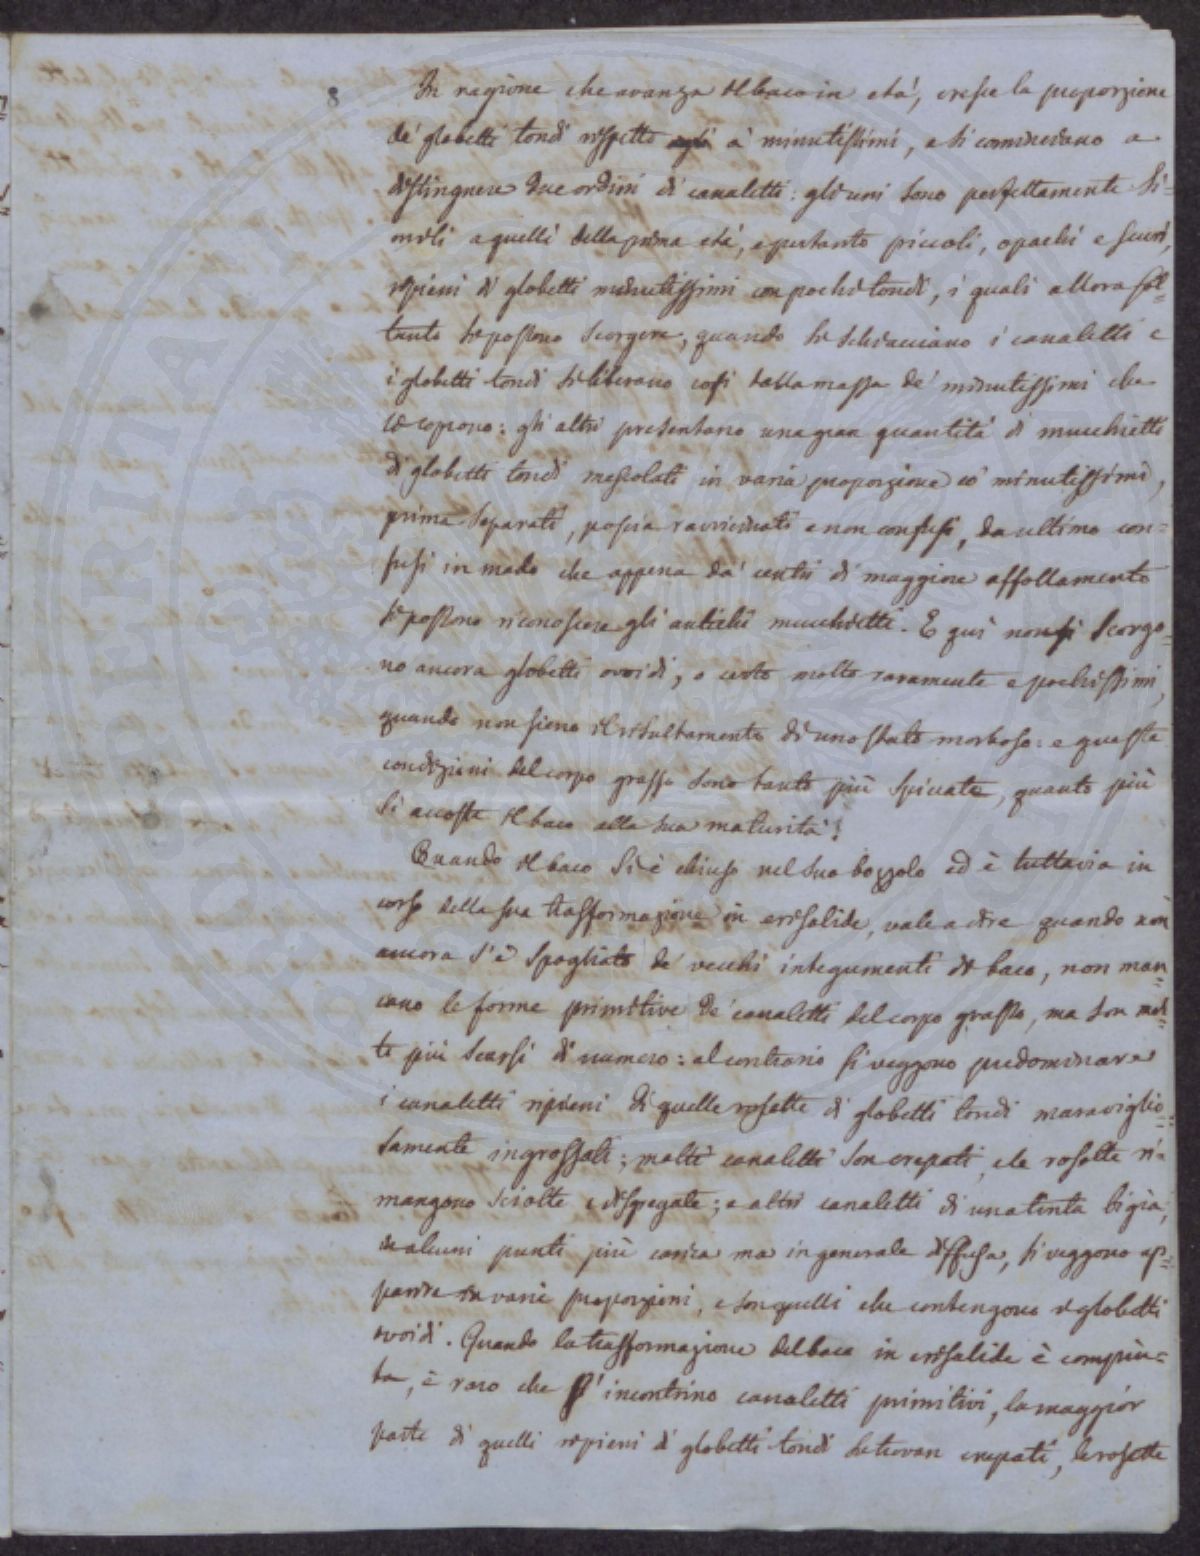 8
In ragione che avanza il baco in età, cresce la proporzione
de' globetti tondi rispetto a' minutissimi, e si cominciano a
distinguere due ordini di canaletti: gli uni sono perfettamente si=
mili a quelli della prima età, e pertanto piccoli, opachi e scuri,
ripieni di globetti minutissimi con pochi tondi, i quali allora sol=
tanto si possono scorgere, quando si schiacciano i canaletti e
i globetti tondi si liberano così dalla massa de' minutissimi che
li copono: gli altri presentano una gran quantità di mucchietti
di globetti tondi mescolati in varia proporzione co' minutissimi,
prima separati, poscia ravvicinati e non confusi, da ultimo con=
fusi in modo che appena da' centri di maggiore affollamento
si possono riconoscere gli antichi mucchietti. E qui non si scorgo=
no ancora globetti ovoidi, o certo molto raramente e pochissimi,
quando non sieno il risultamento di uno stato morboso: e queste
condizioni del corpo grasso sono tanto più spiccate, quanto più
si accosta il baco alla sua maturità.
Quando il baco si è chiuso nel suo bozzolo ed è tuttavia in
corso della sua trasformazione in crisalide, vale a dire quando non
ancora s'è spogliato de' vecchi integumenti di baco, non man=
cano le forme primitive de' canaletti del corpo grasso, ma son mol=
to più scarsi di numero: al contrario si veggono predominare
i canaletti ripieni di quelle rosette di globetti tondi maraviglio=
samente ingrossati; molti canaletti son crepati, e le rosette ri=
mangono sciolte e disgregate; e altri canaletti di una tinta bigia,
in alcuni punti più carica ma in generale diffusa, si veggono ap=
parire in varie proporzioni, e son quelli che contengono i globetti
ovoidi. Quando la trasformazione del baco in crisalide è compiu=
ta, è raro che s'incontrino canaletti primitivi, la maggior
parte di quelli ripieni di globetti tondi si trovan crepati, le rosette
PROSPERITATI